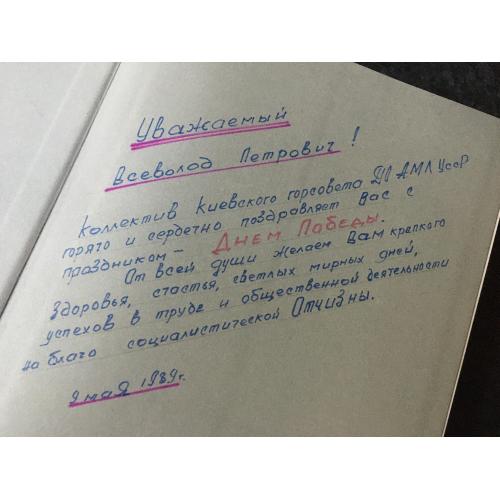 Уважаемый
Всеволод Петрович!
Коллектив Киевского горсовета ДП АМЛ УССР
горячо и сердечно поздравляет Вас с
праздником – Днем Победы.
От всей души желаем Вам крепкого
здоровья, счастья, светлых мирных дней,
успехов в труде и общественной деятельности
на благо социалистической Отчизны.
9 мая 1989г.